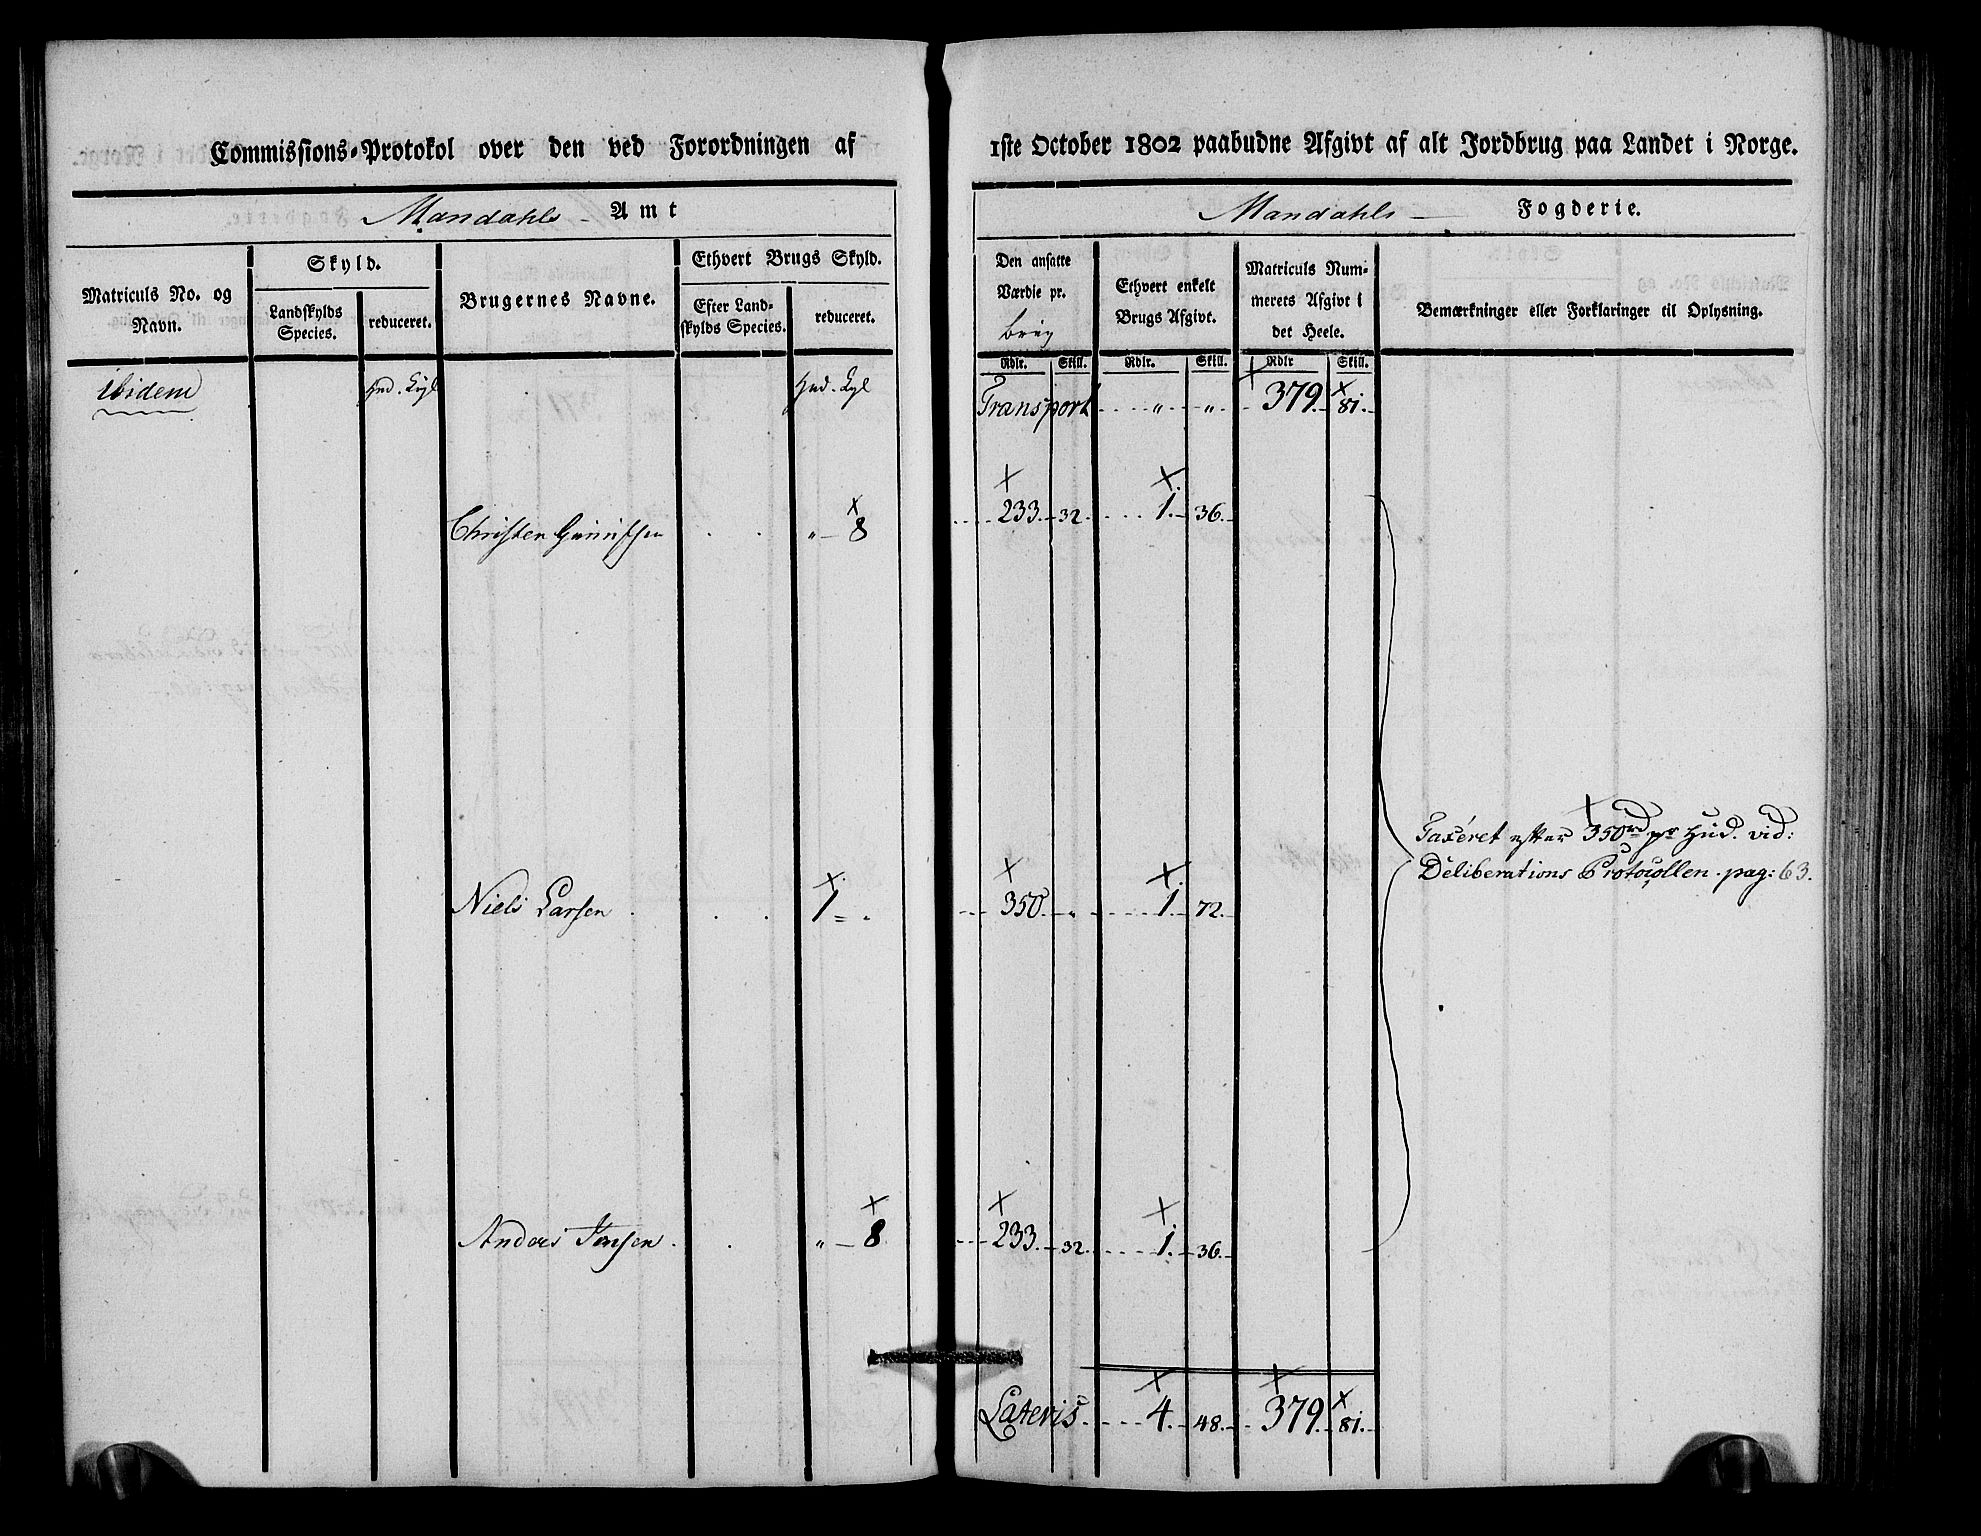 Commissions-Protokol over den ved Forordningen af 1ste October 1802 paabudne Afgivt af alt Jordbrug paa Landet i Norge.
Mandahls Amt
Mandahls Fogderie.
Matriculs No. og
Navn.
Skyld.
Landskylds
Species.
reduceret.
Brugernes Navne.
Ethvert Brugs Skyld.
Efter Land-
skylds Species.
reduceret.
Den ansatte
Værdie pr.
brug
Ethvert enkelt
Brugs Afgivt.
Matriculs Num-
merets Afgivt i
det Heele.
Bemærkninger eller Forklaringer til Oplysning.
Rdlr. Skill. Rdlr. Skill. Rdlr Skill.
ibidem Hud. Transport " " 379. 81.
Christen " 8 233. 32. 1. 36.
Taxéret efter 350rd pr Hud. vid:
Deliberations Protocollen. pag: 63.
Niels Larsen 1 = 350. " 1. 72.
Anders Jensen. " 8 233. 32. 1. 36.
Lateris 4. 48. 379. 81.